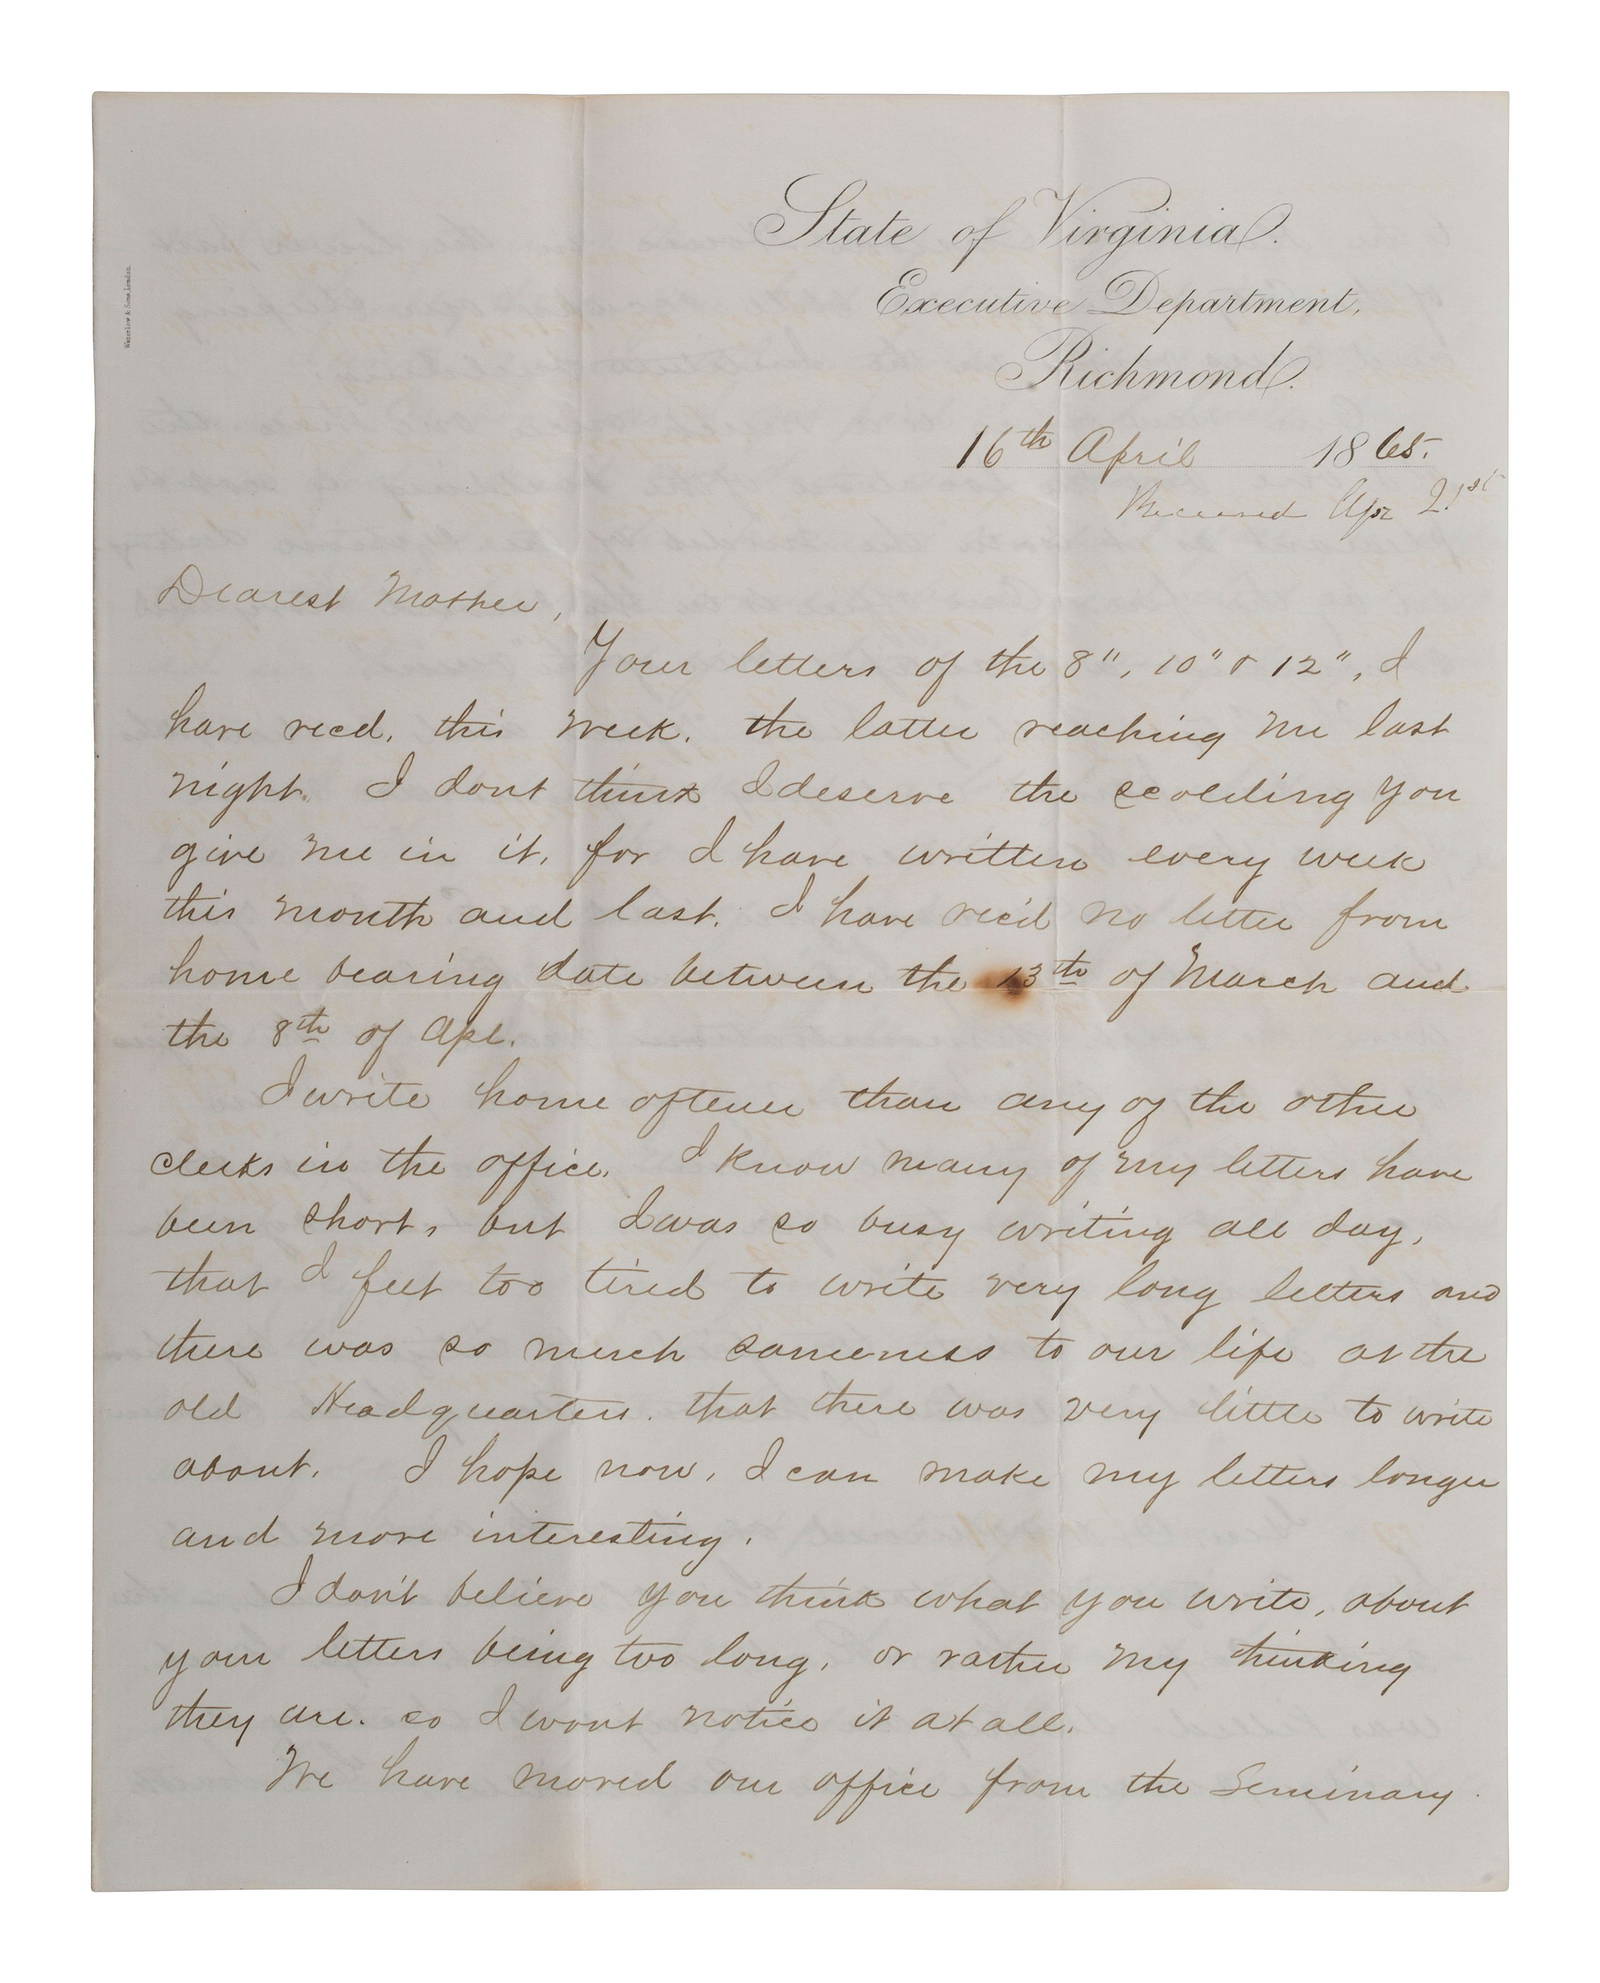 State of Virginia.
Executive Department,
Richmond.
16th April 1865.
Received Apr 21st
Waterlow & Sons London.
Dearest Mother,
Your letters of the 8", 10" & 12", I
have recd. this week. the latter reaching me last
night. I dont think I deserve the scolding you
give me in it, for I have written every week
this month and last. I have rec'd no letter from
home bearing date between the 13th of March and
the 8th of Apl.
I write home oftener than any of the other
clerks in the office. I know many of my letters have
been short, but I was so busy writing all day,
that I felt too tired to write very long letters and
there was so much sameness to our life at the
old Headquarters. that there was very little to write
about. I hope now, I can make my letters longer
and more interesting.
I don't believe you think what you write, about
your letters being too long, or rather my thinking
they are. so I wont notice it at all.
We have moved our office from the Seminary